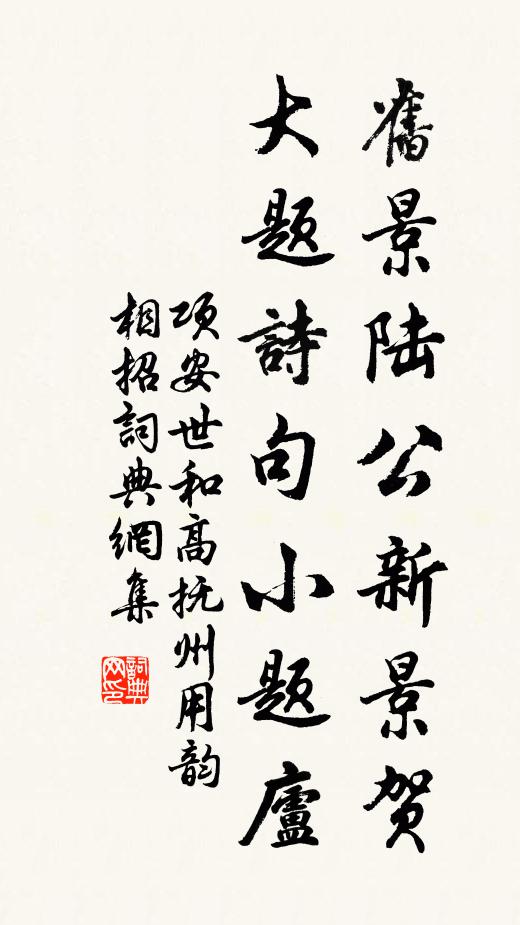 舊景陆公新景贺
大题詩句小题廬
项安世和高抚州用韵
相招詞典網集
詞典网印